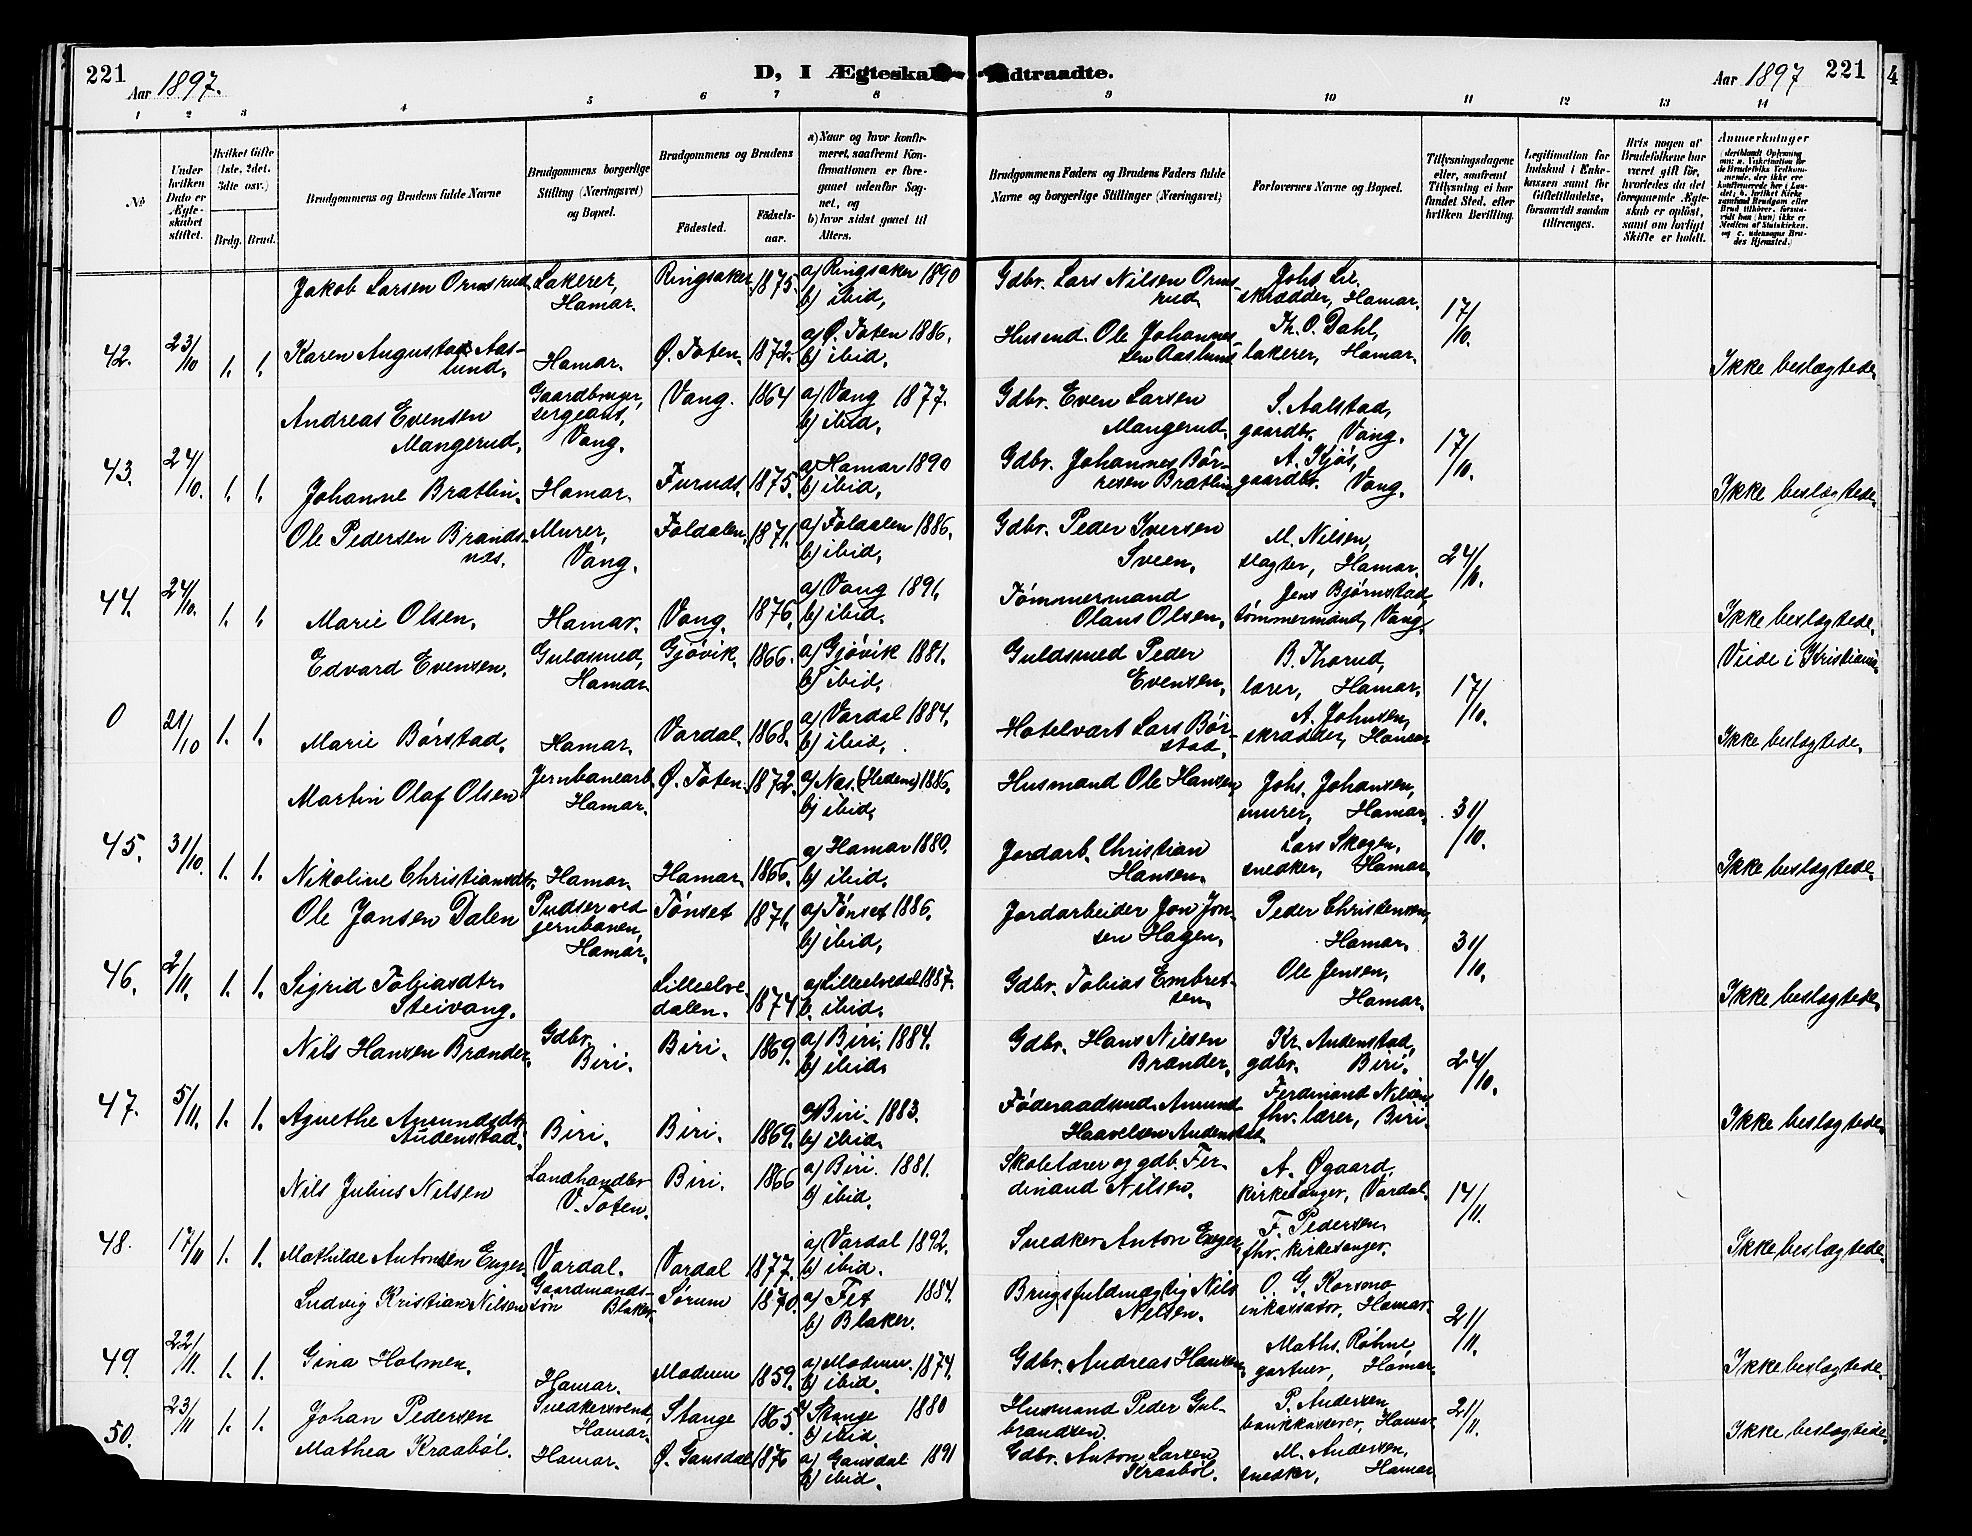 221
Aar 1897.
D, I Ægteska
dtraadte.
Aar 1897
221
4
1 2 3 4 5 6 7 8 9 10 11 12 13 14
No
Under hvilken Dato er Ægteskabet stiftet.
Hvilket Gifte (1ste, 2det, 3dte osv.)
Brdg. Brud.
Brudgommens og Brudens fulde Navne
Brudgommens borgerlige Stilling (Næringsvei) og Bopæl.
Brudgommens og Brudens
Fødested.
Fødselsaar.
a) Naar og hvor konfirmeret, saafremt Konfirmationen er foregaaet udenfor Sognet, og
b) hvor sidst gaaet til Alters.
Brudgommens Faders og Brudens Faders fulde Navne og borgerlige Stillinger (Næringsvei)
Forlovernes Navne og Bopæl.
Tillysningsdagene eller, saafremt Tillysning ei har fundet Sted, efter hvilken Bevilling.
Legitimation for Indskud i Enkekassen samt for Giftetilladelse, forsaavidt saadan tiltrænges.
Hvis nogen af Brudefolkene har været gift før, hvorledes da det foregaaende Ægteskab er opløst, samt om lovligt Skifte er holdt.
Anmerkninger
42. 23/10 1. 1.
Jakob Larsen Ormsrud Lakerer, Hamar. Ringsaker 1875. a) Ringsaker 1890 b) ibid, Gdbr. Lars Nilsen Ormsrud Johs Lie, skrædder, Hamar. 17/10.
Karen Augusta Aaslund, Hamar. Ø. Toten. 1872. a) Ø. Toten 1886. b) ibid, Husmd. Ole Johannessen Aaslund Th. O. Dahl, lakerer, Hamar. Ikke beslægtede.
43. 24/10. 1. 1.
Andreas Evensen Mangerud, Gaardbruger, sergeant, Vang. Vang. 1864 a) Vang 1877. b) ibid, Gdbr. Even Larsen Mangerud, S. Aalstad, gaardbr. Vang. 17/10.
Johanne Brætlin. Hamar. Furnds. 1875. a) Hamar 1890 b) ibid, Gdbr. Johannes Børresen Brætlin A. Kjøs, gaardbr. Vang. Ikke beslægtede.
44. 24/10. 1. 1.
Ole Pedersen Brandsnæs. Murer, Vang. Foldalen, 1871. a) Foldalen 1886. b) ibid, Gdbr. Peder Iversen Sveen, M. Nilsen, slagter, Hamar. 24/10.
Marie Olsen, Hamar. Vang. 1876. a) Vang 1891, b) ibid. Tømmermand Olaus Olsen, Jens Bjørnstad, tømmermand, Vang. Ikke beslægtede.
0 21/10 1. 1.
Edvard Evensen, Guldsmed, Hamar. Gjøvik, 1866. a) Gjøvik 1881. b) ibid, Guldsmed Peder Evensen, B. Thorud, lærer, Hamar, 17/10. Viede i Kristiania
Marie Børstad, Hamar. Vardal. 1868. a) Vardal 1884. b) ibid, Hotelvært Lars Børstad, A. Johnsen, skrædder, Hamar Ikke beslægtede.
45. 31/10. 1. 1.
Martin Olaf Olsen Jernbanearb. Hamar. Ø. Toten. 1872. a) Næs (Hedem) 1886. b) ibid, Husmand Ole Hansen, Johs. Johansen, murer, Hamar. 31/10.
Nikoline Christiansdtr, Hamar. Hamar. 1866. a) Hamar 1880. b) ibid. Jordarb. Christian Hansen. Lars Skogen, snedker, Hamar. Ikke beslægtede.
46. 2/11. 1. 1.
Ole Jonsen Dalen Pudser ved jernbanen, Hamar. Tønset 1871. a) Tønset 1886. b) ibid, Jordarbeider Jon Jonsen Hagen, Peder Christensen, Hamar. 31/10.
Sigrid Tobiasdtr. Steivang. Lilleelvedalen. 1874 a) Lilleelvedal 1887. b. ibid. Gdbr. Tobias Embretsen, Ole Jensen, Hamar. Ikke beslægtede.
47. 5/11. 1. 1.
Nils Hansen Brænder, Gdbr. Biri. Biri. 1869. a) Biri. 1884. b) ibid. Gdbr. Hans Nilsen Brænder, Kr. Audenstad, gdbr. Biri. 24/10.
Agnethe Amundsdtr. Audenstad. Biri. Biri. 1869. a) Biri. 1883. b) ibid. Føderaadsmd. Amund Haavelsen Audenstad Ferdinand Nilsen fhv. lærer, Biri. Ikke beslægtede.
48. 17/11 1. 1.
Nils Julius Nilsen Landhandler V. Toten. Biri. 1866 a) Biri. 1881. b) ibid. Skolelærer og gdb. Ferdinand Nilsen. A. Øgaard, kirkesanger, Vardal. 14/11.
Mathilde Antonsen Enger. Vardal. Vardal 1877. a) Vardal 1892. b) ibid. Snedker Anton Enger, F. Pedersen, fhv. kirkesanger. Ikke beslægtede.
49. 22/11. 1. 1.
Ludvig Kristian Nilsen Gaardmandssøn Blaker Sørum 1870. a) Fet 1884. b) Blaker. Brugsfuldmægtig Nils Nilsen. O. G. Korsmo inkassator, Hamar. 21/11.
Gina Holmen. Hamar. Modum 1859. a) Modum. 1874. b) ibid. Gdbr. Andreas Hansen, Maths. Røhne, gartner, Hamar. Ikke beslægtede.
50. 23/11 1. 1.
Johan Pedersen Snedkersvend, Hamar. Stange 1865 a) Stange 1880 b) ibid. Husmand Peder Gulbrandsen. P. Andersen, bankkasserer, Hamar. 21/11. Ikke beslægtede.
Mathea Kraabøl. Hamar. Ø. Gausdal 1876 a) Gausdal 1891 b) ibid. Gdbr. Anton Larsen Kraabøl. M. Andersen, snedker, Hamar